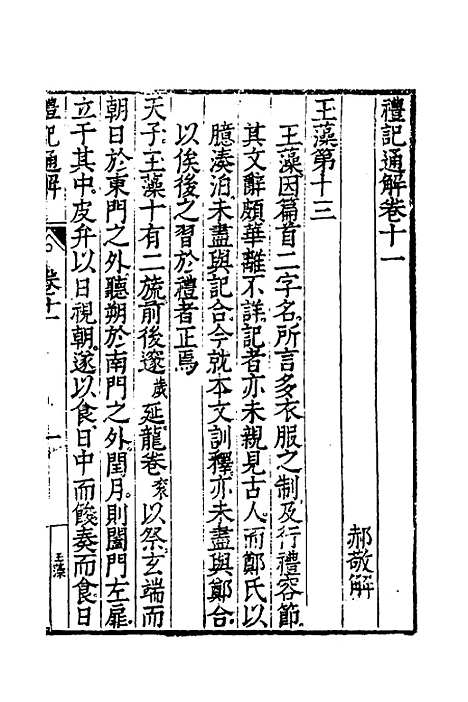 禮記通解卷十一
郝敬解
玉藻第十三
玉藻因篇首二字名。所言多衣服之制及行禮容節。
其文辭頗華離不詳。記者亦未親見古人。而鄭氏以
臆湊泊。未盡與記合。今就本文訓釋。亦未盡與鄭合。
以俟後之習於禮者正焉
天子。玉藻十有二旒。前後邃歲延。龍卷衮以祭。玄端而
朝日於東門之外。聽朔於南門之外。閏月。則闔門左扉。
立于其中。皮弁以日視朝。遂以食。日中而餕。奏而食。日
禮記通解
卷十一
一
玉藻